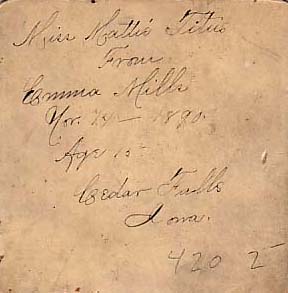 Miss Mattie Titus
From
Emma Mills
Nov. 24 — 1890.
Age 15
Cedar Falls
Iowa.
420 2